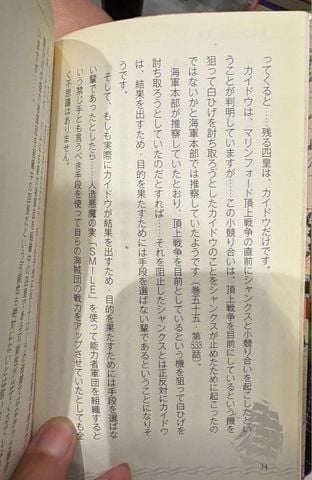 ってくると……残る四皇は、カイドウだけです。
カイドウは、マリンフォード頂上戦争の直前にシャンクスと小競り合いを起こしたとい
うことが判明していますが……この小競り合いは、頂上戦争を目前にしているという機を
狙って白ひげを討ち取ろうとしたカイドウのことをシャンクスが止めたために起こったの
ではないかと海軍本部では推察していたようです（巻五十五・第533話）。
海軍本部が推察していたとおり、頂上戦争を目前としているという機を狙って白ひげを
討ち取ろうとしていたのだとすれば……それを阻止したシャンクスとは正反対にカイドウ
は、結果を出すため・目的を果たすためには手段を選ばない輩であるということになりそ
うです。
そして、もしも実際にカイドウが結果を出すため・目的を果たすためには手段を選ばな
い輩であったとしたら……人造悪魔の実「SMILE」を使って能力者軍団を組織すると
いう禁じ手とも言うべき手段を使って自らの海賊団の戦力をアップさせていたとしても全
く不思議はありません。
34